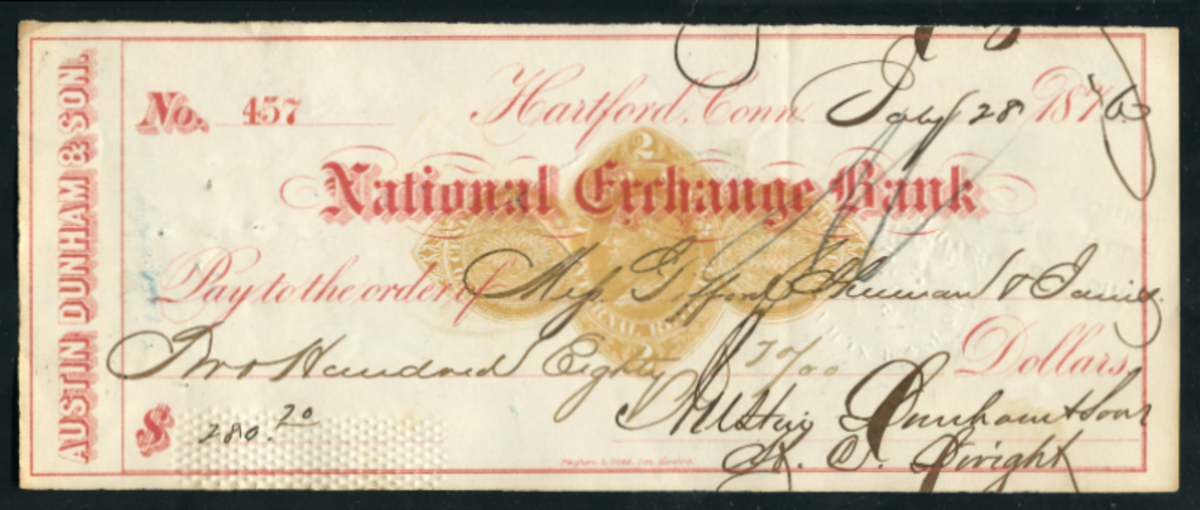 AUSTIN DUNHAM & SON.
No. 457 Hartford, Conn. July 28 187
National Exchange Bank
2
Pay to the order of Mess. &
Two Hundred Eighty 70/100 Dollars
$ 280.70
Austin Dunham & Sons
Dwight